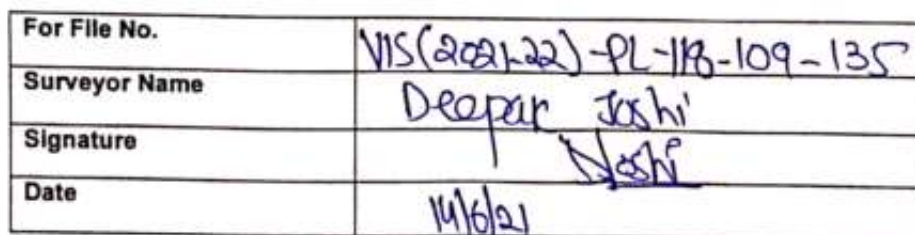 For File No. VIS(2021-22)-PL-118-109-135
Surveyor Name Deepak Joshi
Signature Joshi
Date 14/6/21